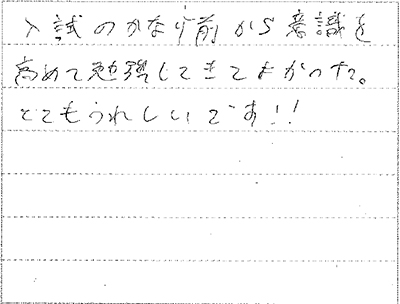 入試のかなり前から意識を
高めて勉強してきてよかった。
とてもうれしいです!!